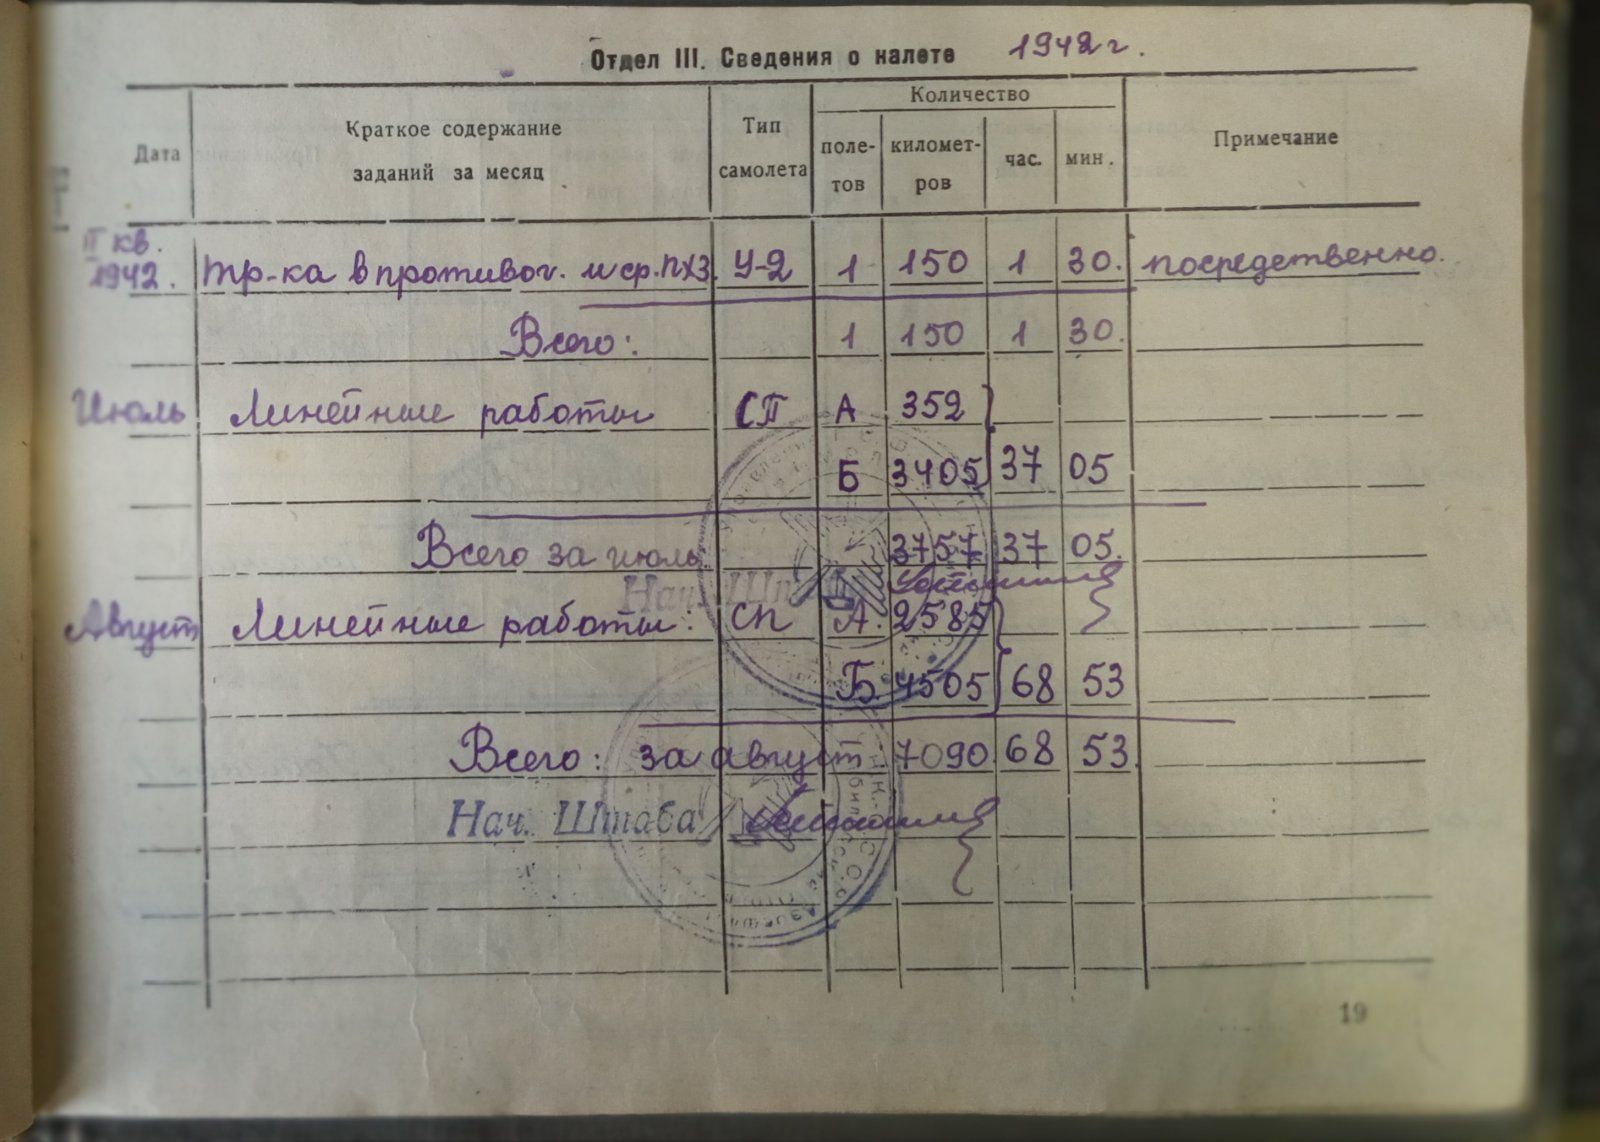 Отдел III. Сведения о налете 1942 г.
Дата Краткое содержание заданий за месяц Тип самолета Количество Примечание
поле-тов километ-ров час. мин.
II кв.
1942. тр-ка в противог. и ср. ПХЗ. У-2 1 150 1 30. посредственно.
Всего: 1 150 1 30.
Июль Линейные работы СП А 352
Б 3405 37 05
Всего за июль 3757 37 05.
Нач. Штаба
Август Линейные работы: СП А. 2585
Б. 4505 68 53
Всего: за август 7090 68 53.
Нач. Штаба
19